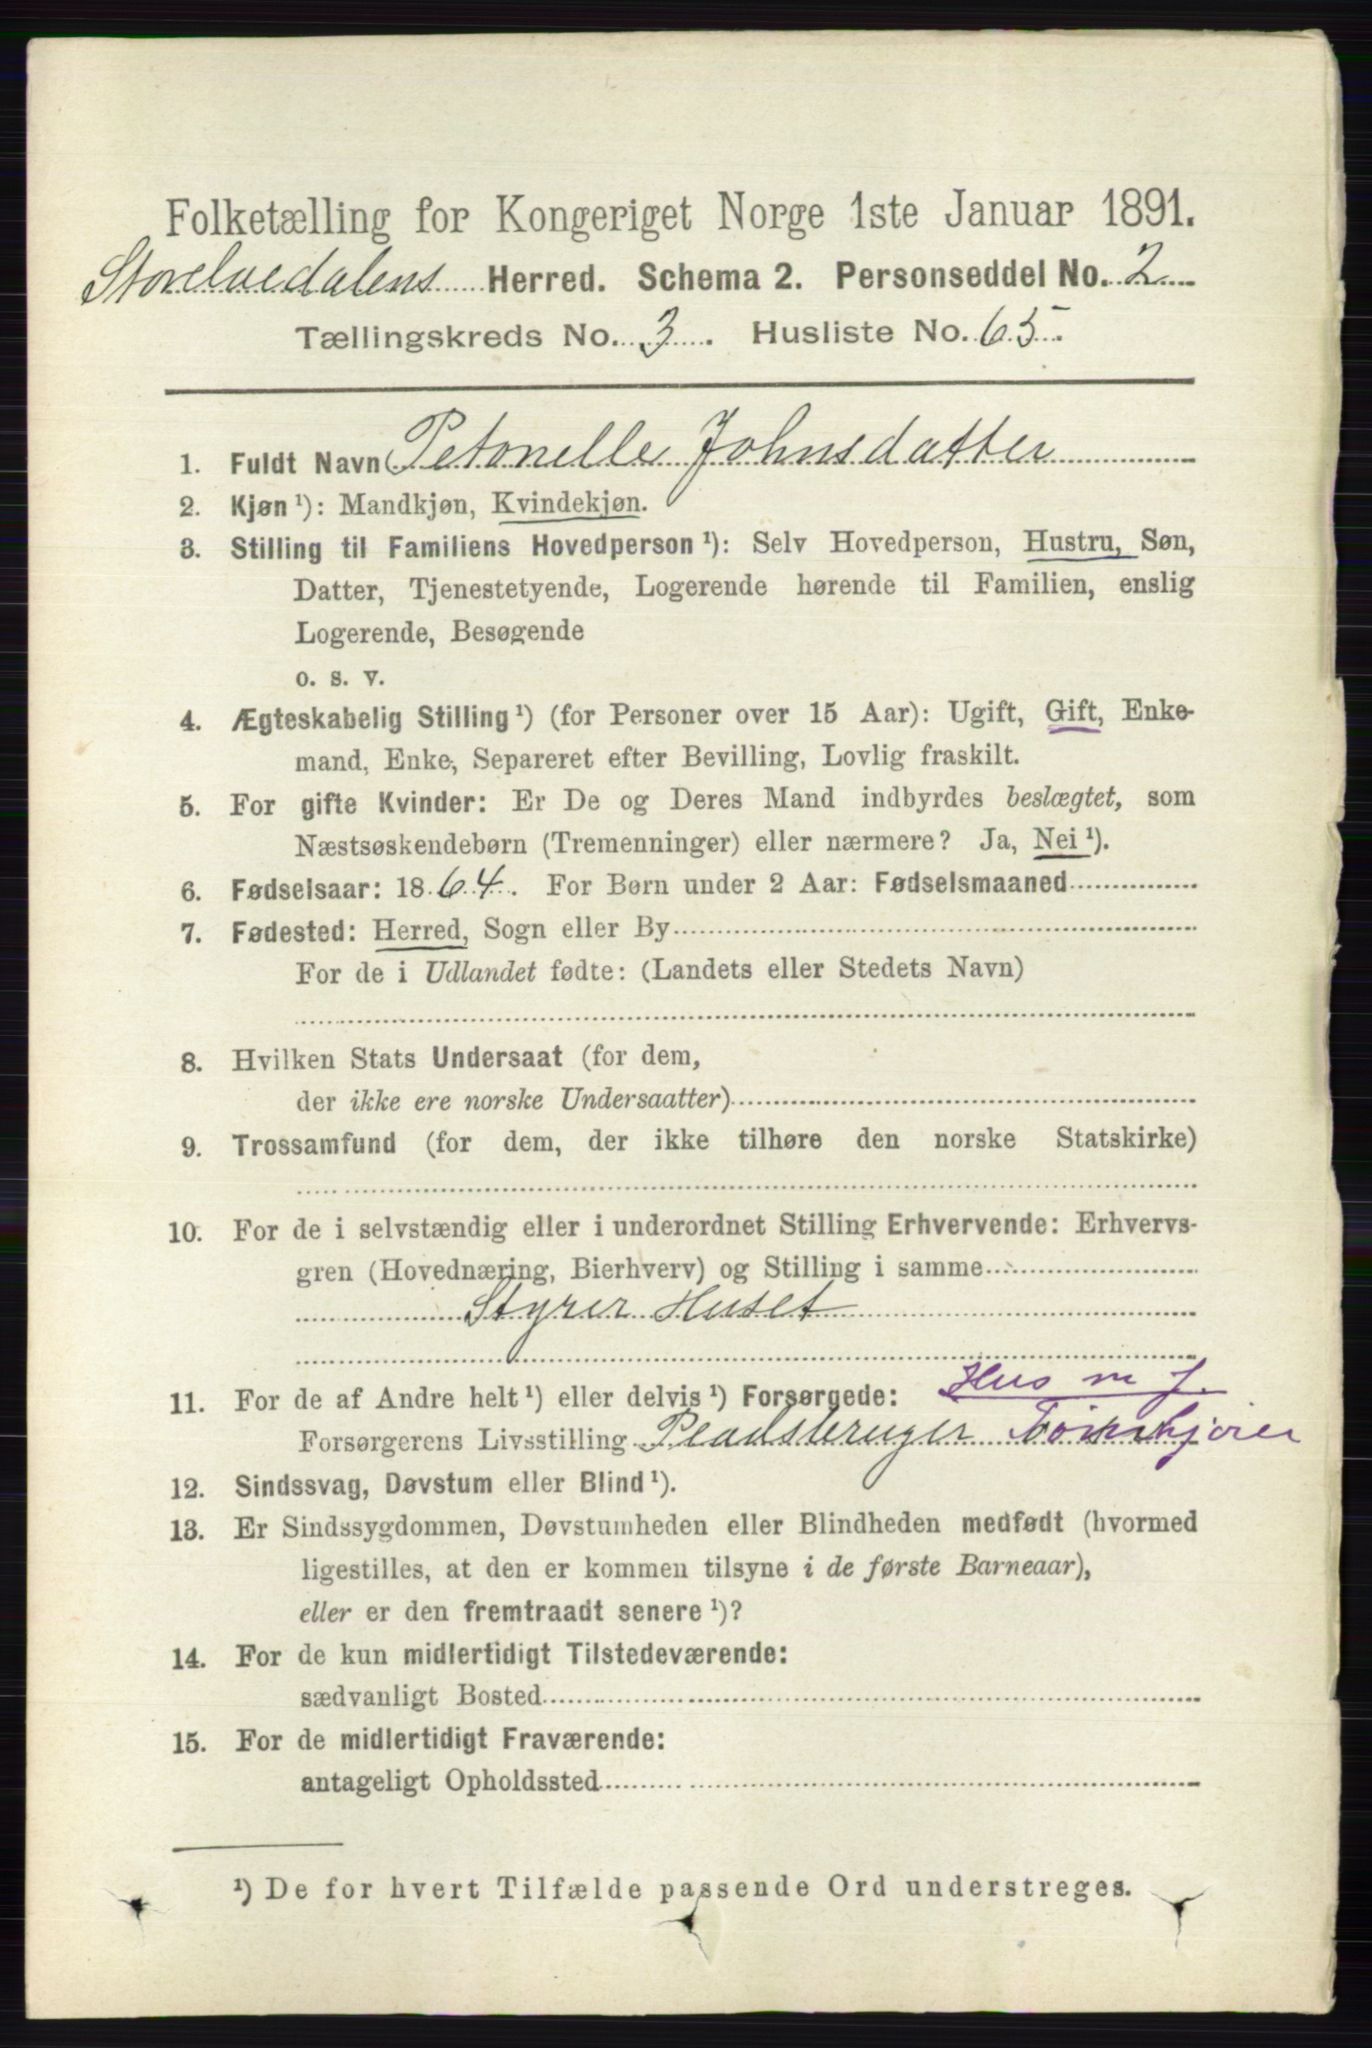 Folketælling for Kongeriget Norge 1ste Januar 1891.
Storelvedalens Herred. Schema 2. Personseddel No. 2
Tællingskreds No. 3. Husliste No. 65.
1. Fuldt Navn Petonelle Johnsdatter
2. Kjøn ¹): Mandkjøn, Kvindekjøn.
3. Stilling til Familiens Hovedperson ¹): Selv Hovedperson, Hustru, Søn,
Datter, Tjenestetyende, Logerende hørende til Familien, enslig
Logerende, Besøgende
o. s. v.
4. Ægteskabelig Stilling ¹) (for Personer over 15 Aar): Ugift, Gift, Enke-
mand, Enke, Separeret efter Bevilling, Lovlig fraskilt.
5. For gifte Kvinder: Er De og Deres Mand indbyrdes beslægtet, som
Næstsøskendebørn (Tremenninger) eller nærmere? Ja, Nei ¹).
6. Fødselsaar: 1864. For Børn under 2 Aar: Fødselsmaaned
7. Fødested: Herred, Sogn eller By
For de i Udlandet fødte: (Landets eller Stedets Navn)
8. Hvilken Stats Undersaat (for dem,
der ikke ere norske Undersaatter)
9. Trossamfund (for dem, der ikke tilhøre den norske Statskirke)
10. For de i selvstændig eller i underordnet Stilling Erhvervende: Erhvervs-
gren (Hovednæring, Bierhverv) og Stilling i samme
Styrer Huset
Hus m J.
11. For de af Andre helt ¹) eller delvis ¹) Forsørgede:
Forsørgerens Livsstilling Pladsbruger
12. Sindssvag, Døvstum eller Blind ¹).
13. Er Sindssygdommen, Døvstumheden eller Blindheden medfødt (hvormed
ligestilles, at den er kommen tilsyne i de første Barneaar),
eller er den fremtraadt senere ¹)?
14. For de kun midlertidigt Tilstedeværende:
sædvanligt Bosted
15. For de midlertidigt Fraværende:
antageligt Opholdssted
¹) De for hvert Tilfælde passende Ord understreges.